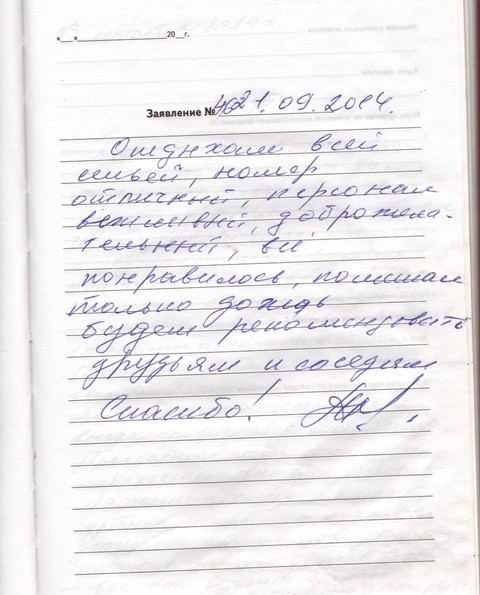 «__»____________20__г.
Заявление № 46 21.09.2014.
Отдыхали всей
семьей, номер
отличный, персонал
вежливый, доброжела-
тельный, всё
понравилось, помешал
только дождь
будем рекомендовать
друзьям и соседям
Спасибо!